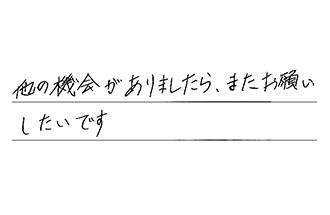 他の機会がありましたら、またお願い
したいです